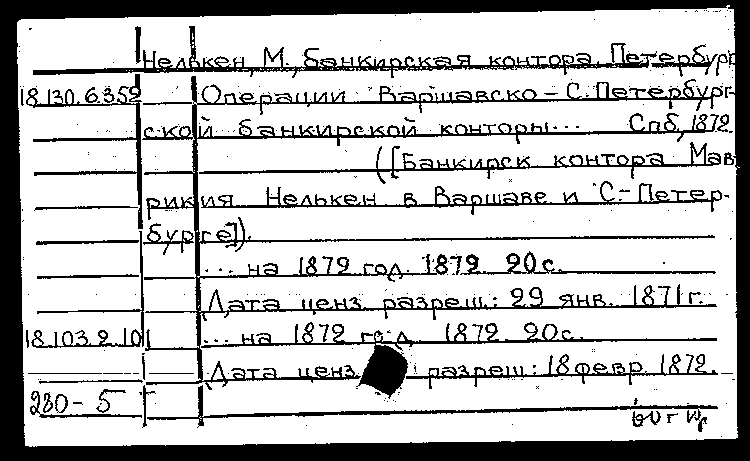 Нелькен, М., банкирская контора. Петербург
18.130.6.352 Операции Варшавско-С.Петербург-
ской банкирской конторы... Спб, 1872
([Банкирск контора Мав
рикия Нелькен в Варшаве и С.-Петер-
бурге]).
... на 1872 год. 1872. 20с.
Дата ценз. разреш.: 29 янв. 1871г.
18.103.2.101 ... на 1872 год. 1872. 20с.
Дата ценз. разреш: 18 февр. 1872.
280-5